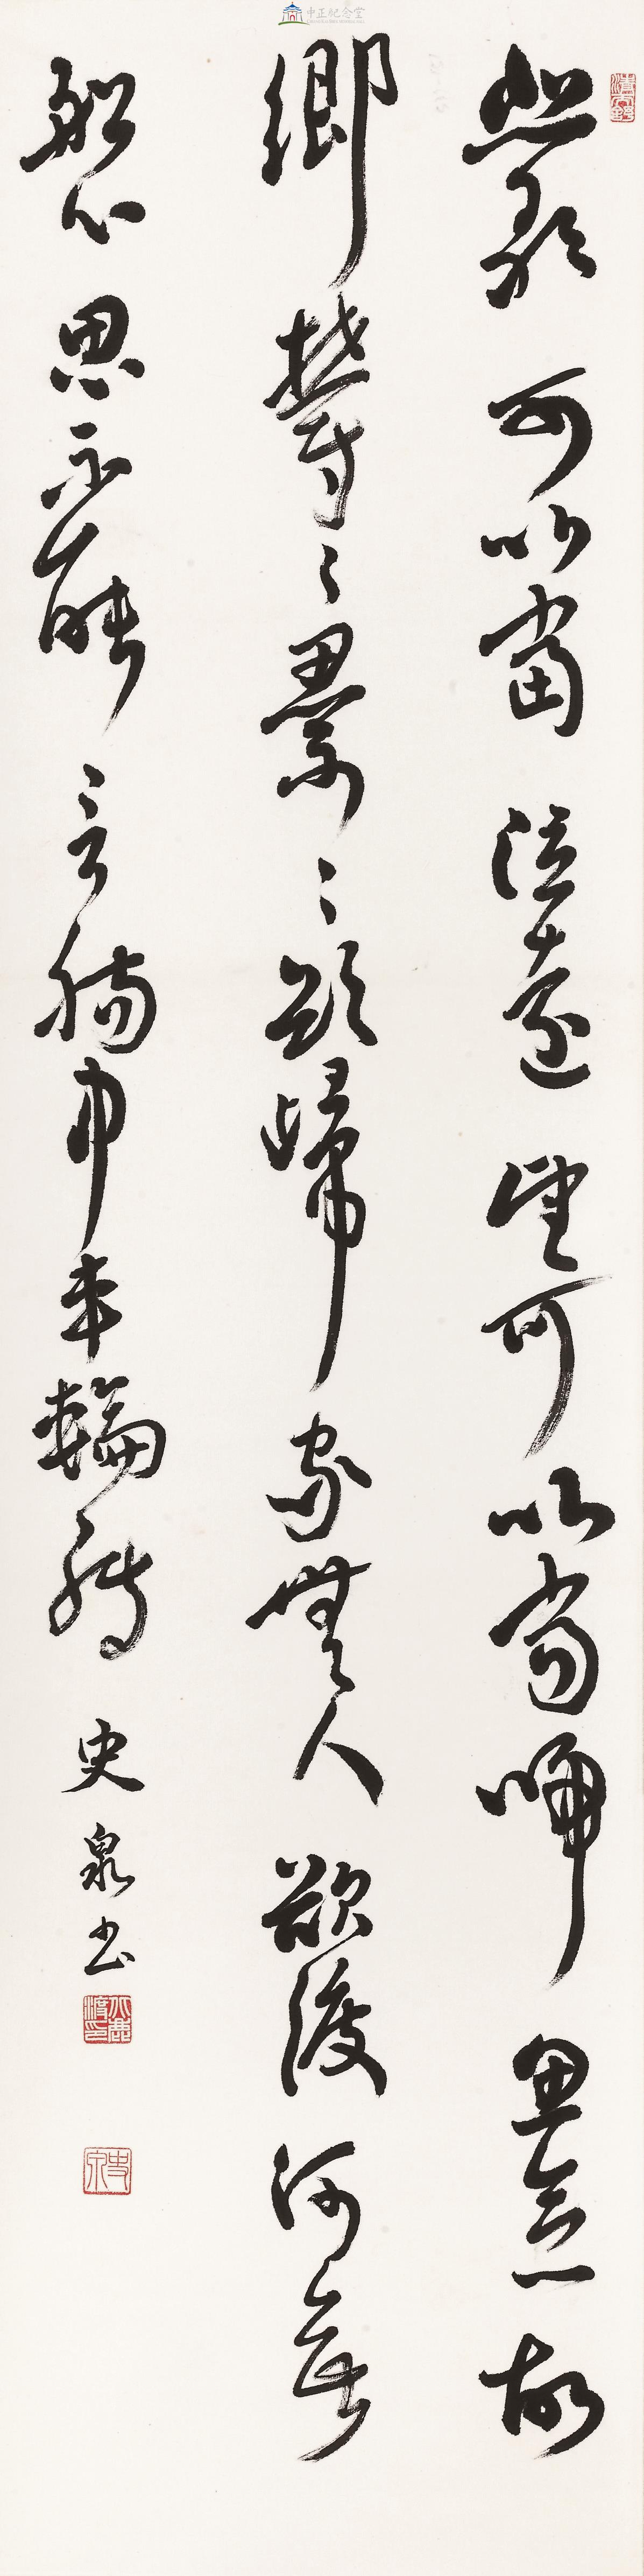 中正紀念堂
悲歌可以當泣遠望可以當歸思念故
鄉鬱〻纍〻欲歸家無人欲渡河無
船心思不能言腸中車輪轉
史泉書